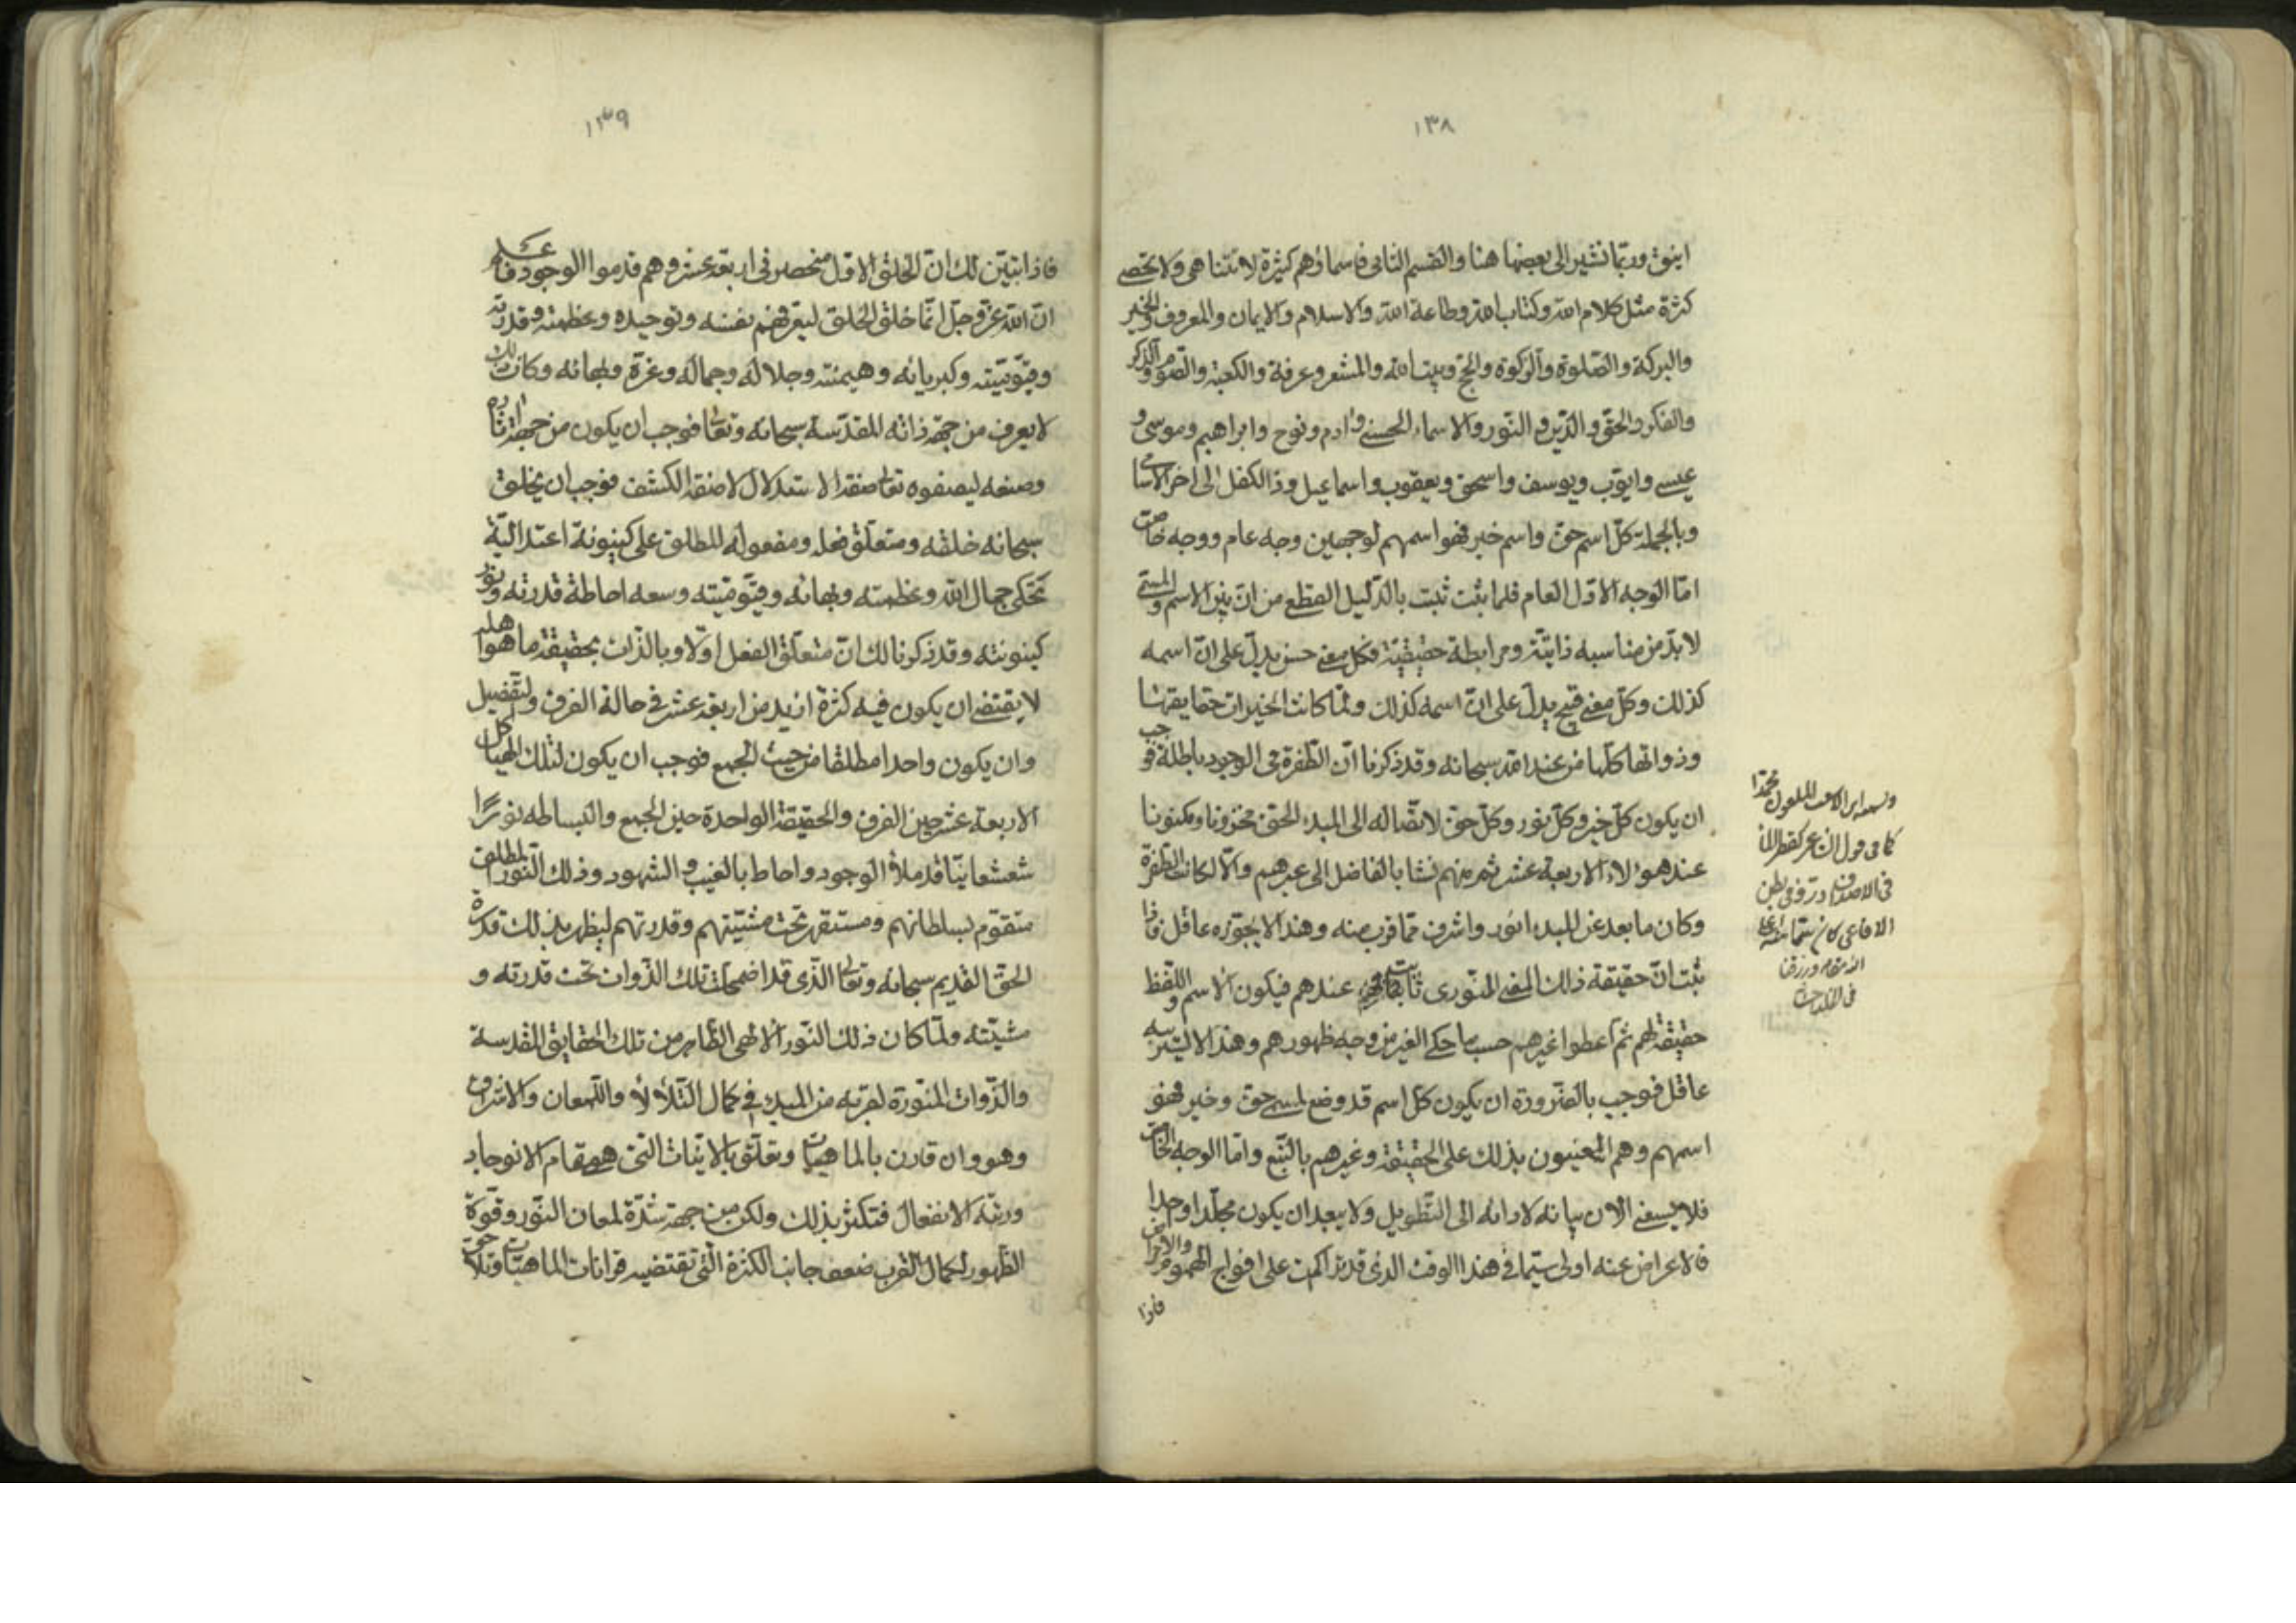 ١٣٨
اينق وربّما نشير الى بعضها هنا والقسم الثانى فاسماؤهم كثيرة لا تتناهى ولا تحصى
كثرة مثل كلام الله وكتاب الله وطاعة الله والاسلام والايمان والمعروف والخير
والبركة والصّلوة والزكوة والحج وبيت الله والمشعر وعرفة والكعبة والصّوم والذكر
والفكر والحقّ والدّين والنّور والاسماء الحسنى وادم ونوح وابراهيم وموسى و
عيسى وايوّب ويوسف واسحق ويعقوب واسماعيل وذا الكفل الى اخر الاسامى
وبالجملة كلّ اسم حق واسم خير فهو اسمهم لوجهين وجه عام ووجه خاص
امّا الوجه الاوّل العام فلما ثبت بالدّليل القطعى من انّ بين الاسم والمسمّى
لا بدّ من مناسبه ذاتيّة ومرابطة حقيقيّة فكل معنى حسن يدلّ على انّ اسمه
كذلك وكلّ معنى قبيح يدلّ على انّ اسمه كذلك ولمّا كانت الخيرات حقايقها
وذواتها كلّها من عند الله سبحانه وقد ذكرنا انّ الطّفرة فى الوجود باطلة فوجب
ان يكون كلّ خير وكلّ نور وكلّ حق لاتصّاله الى المبدء الحق مخزونا ومكنونا
عند هؤلاء الاربعة عشر ثم منهم نشا بالفاضل الى غيرهم والاّ لكانت الطّفرة
وكان ما بعد عن المبدء انور واشرف ممّا قرب منه وهذا لا يجوّزه عاقل فاذا
ثبت انّ حقيقة ذلك المعنى النّورى ثابتة عندهم فيكون الاسم واللّفظ
حقيقة لهم ثم اعطوا غيرهم حسب ما حكى الغير من وجه ظهورهم وهذا لا يستريبه
عاقل فوجب بالضّرورة ان يكون كلّ اسم قد وضع لمسمى حق وخير فهو
اسمهم وهم المعنيون بذلك على الحقيقة وغيرهم بالتّبع وامّا الوجه الخاص
فلا يسعنى الان بيانه لادائه الى التّطويل ولا يبعد ان يكون مجلّدا واحدا
فالاعراض عنه اولى سيّما فى هذا الوقت الذى قد تراكمت على افواج الهموم والامراض
فاذا
كما فى قول
فى الاصداف درّ وفى بطن
الافاعى كان سمّا
١٣٩
فاذا تبيّن لك انّ الخلق الاوّل منحصر فى اربعة عشر وهم قدموا الوجود فاعلم
انّ الله عزّ وجل انّما خلق الخلق ليعرفهم نفسه وتوحيده وعظمته وقدرته
وقيّوميّته وكبريائه وهيمنته وجلاله وجماله وعزّه وبهائه وكان ذلك
لا يعرف من جهة ذاته المقدّسة سبحانه وتعالى فوجب ان يكون من جهة اثاره
وصنعه ليصفوه تعالى صفة الاستدلال لا صفة الكشف فوجب ان يخلق
سبحانه خلقه ومتعلّق فعله ومفعوله المطلق على كينونة اعتداليّة
تحكى جمال الله وعظمته وبهائه وقيّوميّته وسعه احاطة قدرته ونور
كينونته وقد ذكرنا لك انّ متعلّق الفعل اوّلا وبالذّات بحقيقة ما هو اهله
لا يقتضى ان يكون فيه كثرة ازيد من اربعة عشر فى حالة الفرق والتّفصيل
وان يكون واحدا مطلقا من حيث الجمع فوجب ان يكون لتلك الهياكل
الاربعة عشر حين الفرق والحقيقة الواحدة حين الجمع والبساطه نورًا
شعشعانيّا قد ملأ الوجود واحاط بالغيب والشهود وذلك النّور المطلق
متقوّم بسلطانهم ومستقر تحت مشيّتهم وقدرتهم ليظهر بذلك قدرة
الحق القديم سبحانه وتعالى الّذى قد اضمحلت تلك الذّوات تحت قدرته و
مشيّته ولمّا كان ذلك النّور الالهى الظّاهر من تلك الحقايق المقدسة
والذّوات المنورة لقربه من المبدء فى كمال التّلألأ واللّمعان والاشراق
وهو وان قارن بالماهيّات وتعلّق بالانيّات الّتى هى مقام الانوجاد
ورتبة الانفعال فتكثّر بذلك ولكن من جهة شدّة لمعان النّور وقوّة
الظّهور لكمال القرب ضعف جانب الكثرة الّتى تقتضيه قرانات الماهيّات وتلا